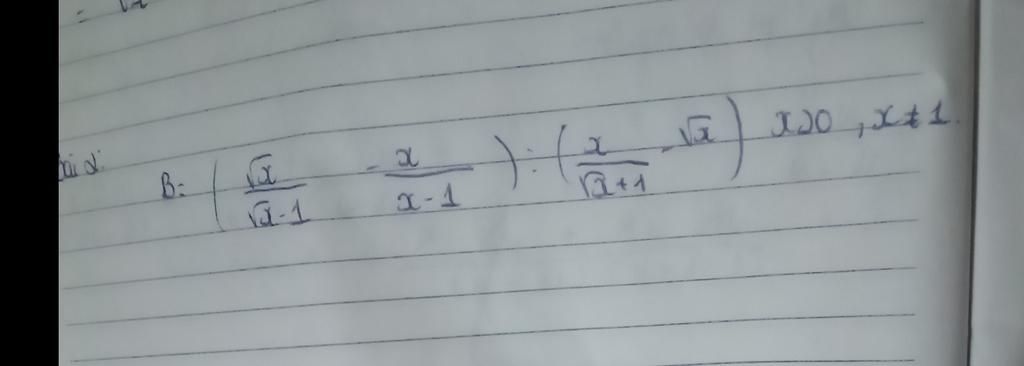 = √x
Bài 2:
B = ( √x / (√x - 1) - x / (x - 1) ) : ( x / (√x + 1) - √x ) x > 0 , x ≠ 1.